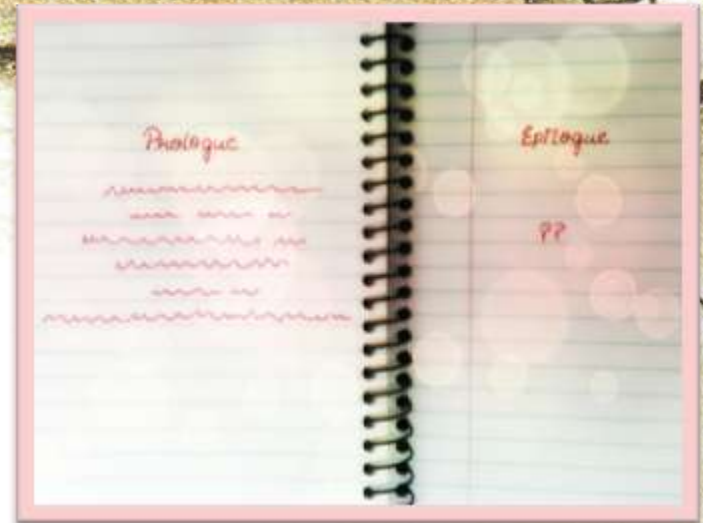 Prologue
Epilogue
??